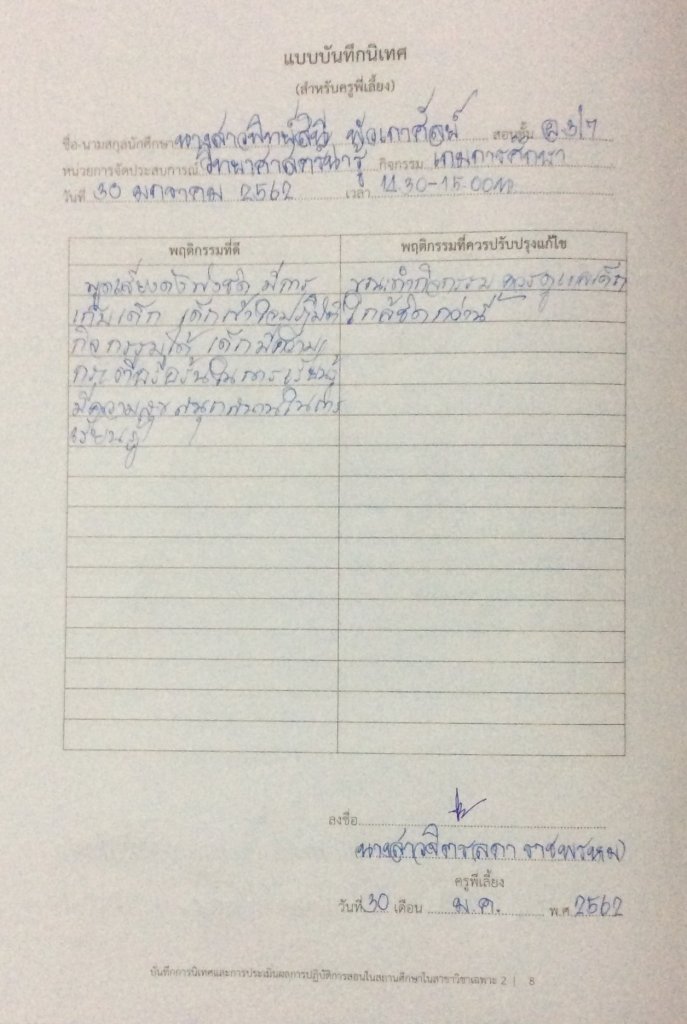 แบบบันทึกนิเทศ
(สำหรับครูพี่เลี้ยง)
ชื่อ-นามสกุลนักศึกษา นางสาว สอนชั้น อ.3/7
หน่วยการจัดประสบการณ์ วิทยาศาสตร์น่ารู้ กิจกรรม เกมการศึกษา
วันที่ 30 มกราคม 2562 เวลา 14.30-15.00น.
พฤติกรรมที่ดี พฤติกรรมที่ควรปรับปรุงแก้ไข
พูดเสียงดังฟังชัด มีการ ขณะทำกิจกรรม ควรดูแลเด็ก
เก็บเด็ก เด็กเข้าใจปฏิบัติ ใกล้ชิดกว่านี้
กิจกรรมได้ เด็กมีความ
กระตือรือร้นในการเรียนรู้
มีความสุข สนุกสนานในการ
เรียนรู้
ลงชื่อ
นางสาวจิตรลดา ราชพรหม)
ครูพี่เลี้ยง
วันที่ 30 เดือน ม.ค. พ.ศ. 2562
บันทึกการนิเทศและการประเมินผลการปฏิบัติการสอนในสถานศึกษาในสาขาวิชาเฉพาะ 2 | 8